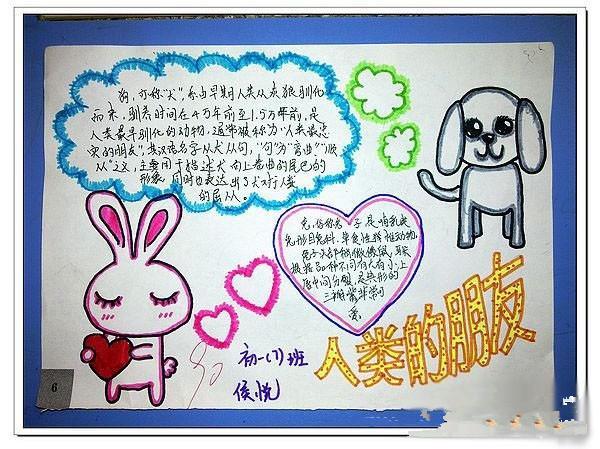 狗，亦称“犬”，系由早期人类从灰狼驯化
而来，驯养时间在4万年前至1.5万年前，是
人类最早驯化的动物，通常被称为“人类最忠
实的朋友”，其汉语名字从犬从句，“句”为“弯曲”
从”之义，主要用于描述犬向上卷曲的尾巴的
形象，同时也表达出了犬对于人类
的屈从。
兔，俗称兔子，是哺乳类
兔形目兔科，草食性脊 性动物，
兔子头部
根据品种不同有大有小，上
唇中间分裂，是典型的
三瓣嘴非常可
爱。
人类的朋友
初一(7)班
侯悦
90
6